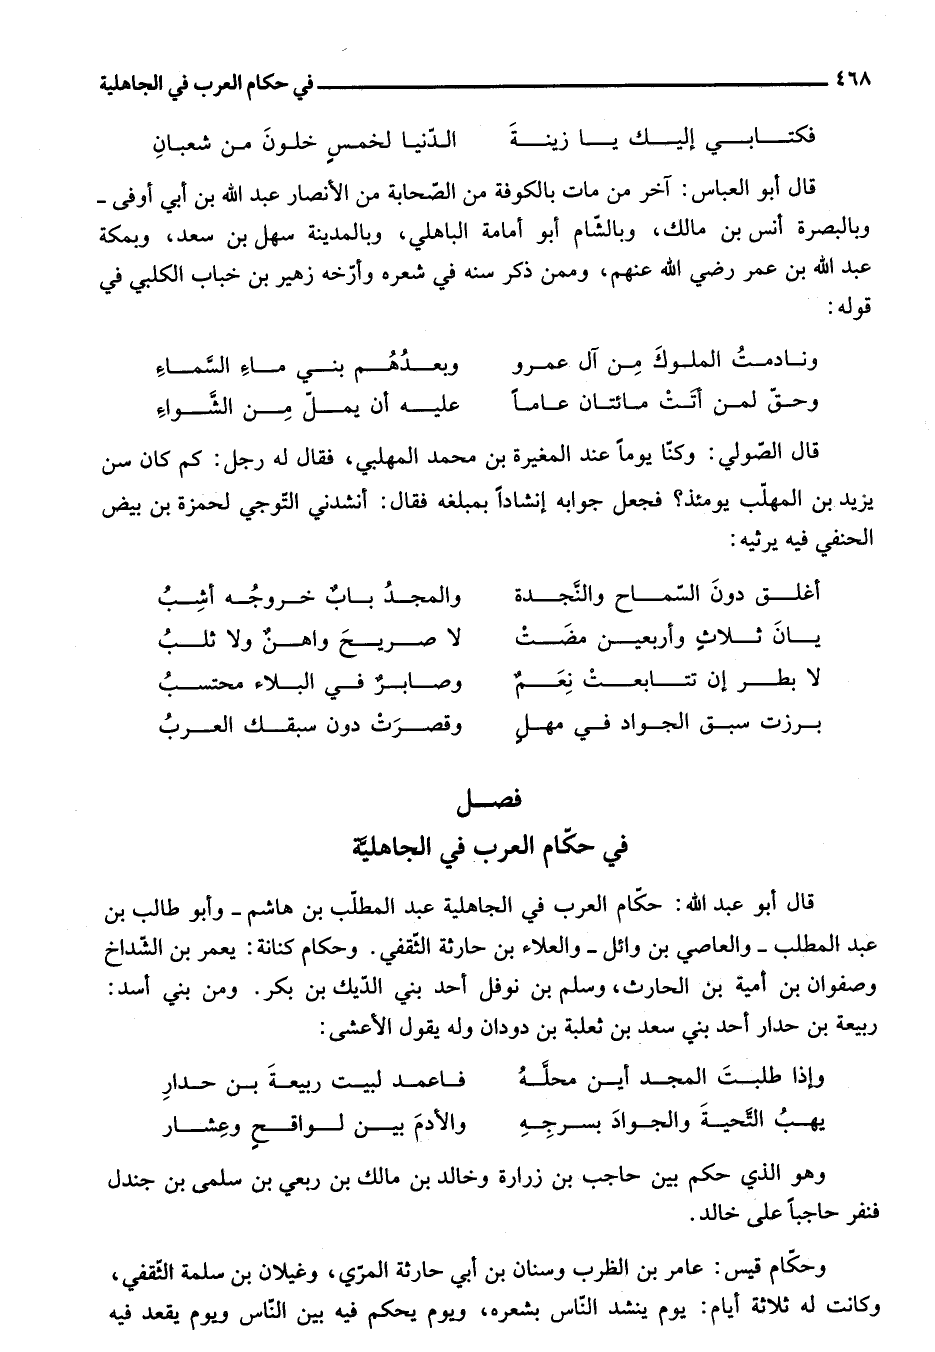 ٤٦٨ في حكام العرب في الجاهلية
فكتابي إليك يا زينةَ الدّنيا لخمسٍ خلونَ من شعبانِ
قال أبو العباس: آخر من مات بالكوفة من الصّحابة من الأنصار عبد الله بن أبي أوفى -
وبالبصرة أنس بن مالك، وبالشّام أبو أمامة الباهلي، وبالمدينة سهل بن سعد، وبمكة
عبد الله بن عمر رضي الله عنهم، وممن ذكر سنه في شعره وأرّخه زهير بن خباب الكلبي في
قوله:
ونادمتُ الملوكَ مِن آل عمرو وبعدُهُم بني ماءِ السَّماءِ
وحقّ لمن أتَتْ مائتان عاماً عليه أن يملّ مِن الثَّواءِ
قال الصّولي: وكنّا يوماً عند المغيرة بن محمد المهلبي، فقال له رجل: كم كان سن
يزيد بن المهلّب يومئذ؟ فجعل جوابه إنشاداً بمبلغه فقال: أنشدني التّوجي لحمزة بن بيض
الحنفي فيه يرثيه:
أغلق دونَ السّماح والنَّجدة والمجدُ بابٌ خروجُه أشِبُ
يانَ ثلاثٍ وأربعين مضَتْ لا صريحَ واهنٌ ولا ثلبُ
لا بطر إن تتابعتْ نِعَمٌ وصابرٌ في البلاء محتسبُ
برزت سبق الجواد في مهلٍ وقصرَتْ دون سبقك العربُ
فصل
في حكّام العرب في الجاهليَّة
قال أبو عبد الله: حكّام العرب في الجاهلية عبد المطلّب بن هاشم - وأبو طالب بن
عبد المطلب - والعاصي بن وائل - والعلاء بن حارثة الثّقفي. وحكام كنانة: يعمر بن الشّداخ
وصفوان بن أمية بن الحارث، وسلم بن نوفل أحد بني الدّيك بن بكر. ومن بني أسد:
ربيعة بن حدار أحد بني سعد بن ثعلبة بن دودان وله يقول الأعشى:
وإذا طلبتَ المجد أين محلَّهُ فاعمد لبيت ربيعةَ بن حدارِ
يهبُ النَّحيةَ والجوادَ بسرجِهِ والأدمَ بين لواقحٍ وعِشار
وهو الذي حكم بين حاجب بن زرارة وخالد بن مالك بن ربعي بن سلمى بن جندل
فنفر حاجباً على خالد.
وحكّام قيس: عامر بن الظرب وسنان بن أبي حارثة المرّي، وغيلان بن سلمة الثّقفي،
وكانت له ثلاثة أيام: يوم ينشد النّاس بشعره، ويوم يحكم فيه بين النّاس ويوم يقعد فيه